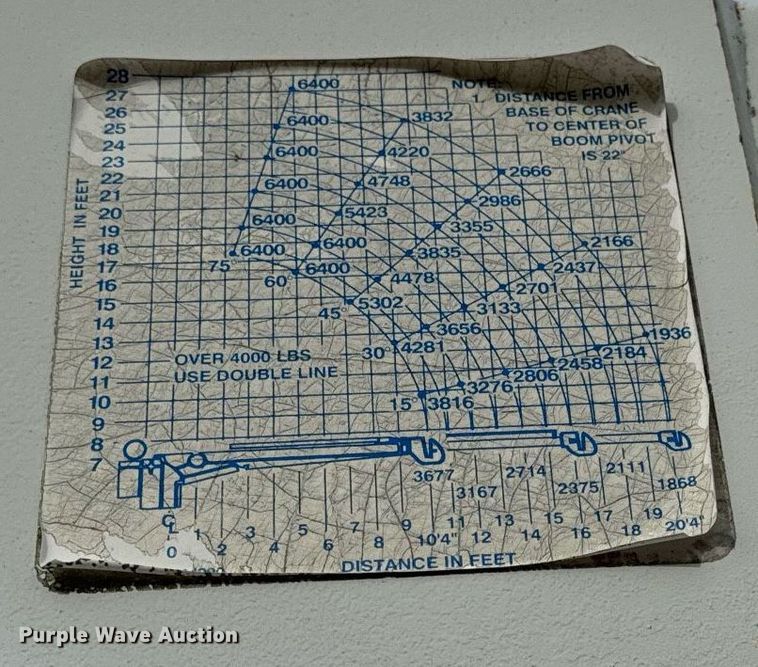 28
27
26
25
24
23
22
21
20
19
18
17
16
15
14
13
12
11
10
9
8
7
HEIGHT IN FEET
NOTE:
1. DISTANCE FROM
BASE OF CRANE
TO CENTER OF
BOOM PIVOT
IS 22"
6400
6400 3832
6400 4220
6400 4748 2666
6400 5423 2986
75° 6400 6400 3355 2166
60° 6400 3835 2437
4478 2701
45° 5302 3133
3656 1936
30° 4281 2184
2458
2806
3276
15° 3816
OVER 4000 LBS
USE DOUBLE LINE
3677 3167 2714 2375 2111 1868
CL
0 1 2 3 4 5 6 7 8 9 10'4" 11 12 13 14 15 16 17 18 19 20'4"
DISTANCE IN FEET
Purple Wave Auction